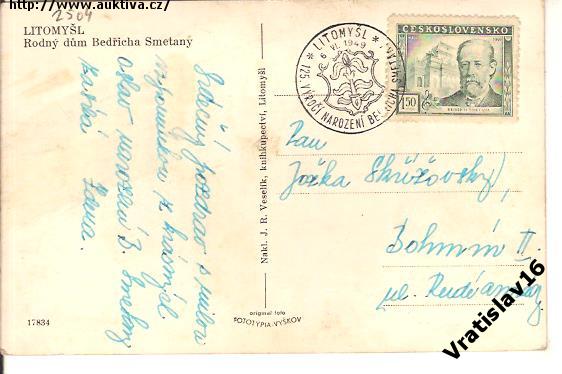 http://www.auktiva.cz/
2504
LITOMYŠL
Rodný dům Bedřicha Smetany
Srdečný pozdrav s milou
vzpomínkou z krásných
oslav narození B. Smetany
17834
Nakl. J. R. Veselík, knihkupectví, Litomyšl
original foto
FOTOTYPIA-VYŠKOV
* LITOMYŠL *
6 VI. 1949
125. VÝROČÍ NAROZENÍ BEDŘICHA SMETANY
ČESKOSLOVENSKO
1·50
BEDŘICH SMETANA
Pan
Jožka Skřížovský,
Bohumín II.
ul. Rudé armády
Vratislav16